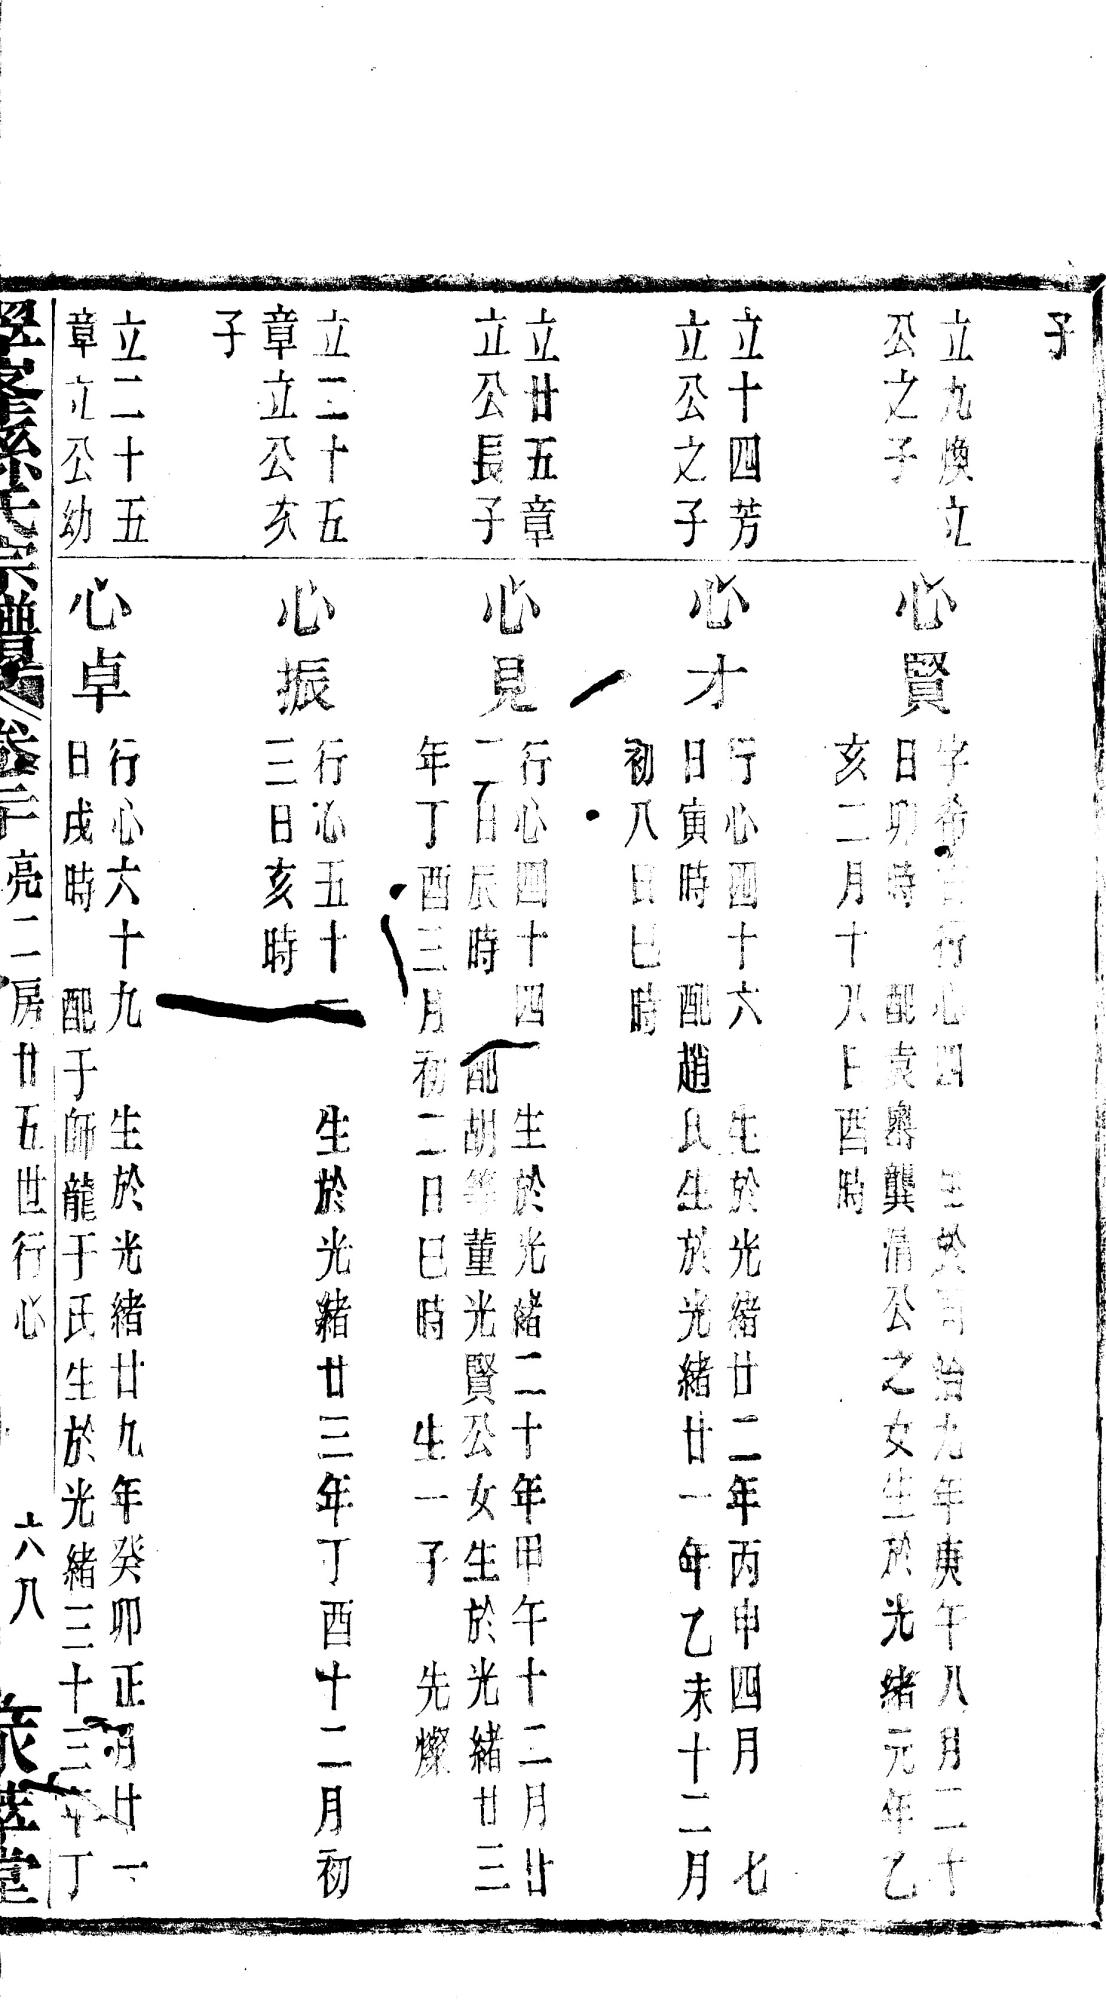 子
立九煥立
公之子
心賢
字希 行心四 生於同治九年庚午八月二十
日卯時 配袁 龔清公之女生於光緒元年乙
亥二月十八日酉時
立十四芳
立公之子
心才
行心四十六 生於光緒廿二年丙申四月 七
日寅時 配趙氏生於光緒廿一年乙未十二月
初八日巳時
立廿五章
立公長子
心見
行心四十四 生於光緒二十年甲午十二月廿
二日辰時 配胡 董光賢公女生於光緒廿三
年丁酉三月初二日巳時 生一子 先燦
立二十五
章立公次
子
心振
行心五十一 生於光緒廿三年丁酉十二月初
三日亥時
立二十五
章立公幼
心卓
行心六十九 生於光緒廿九年癸卯正月廿一
日戌時 配于師龍于氏生於光緒三十三年丁
氏宗譜 卷二 亮二房廿五世行心 六八 萃堂